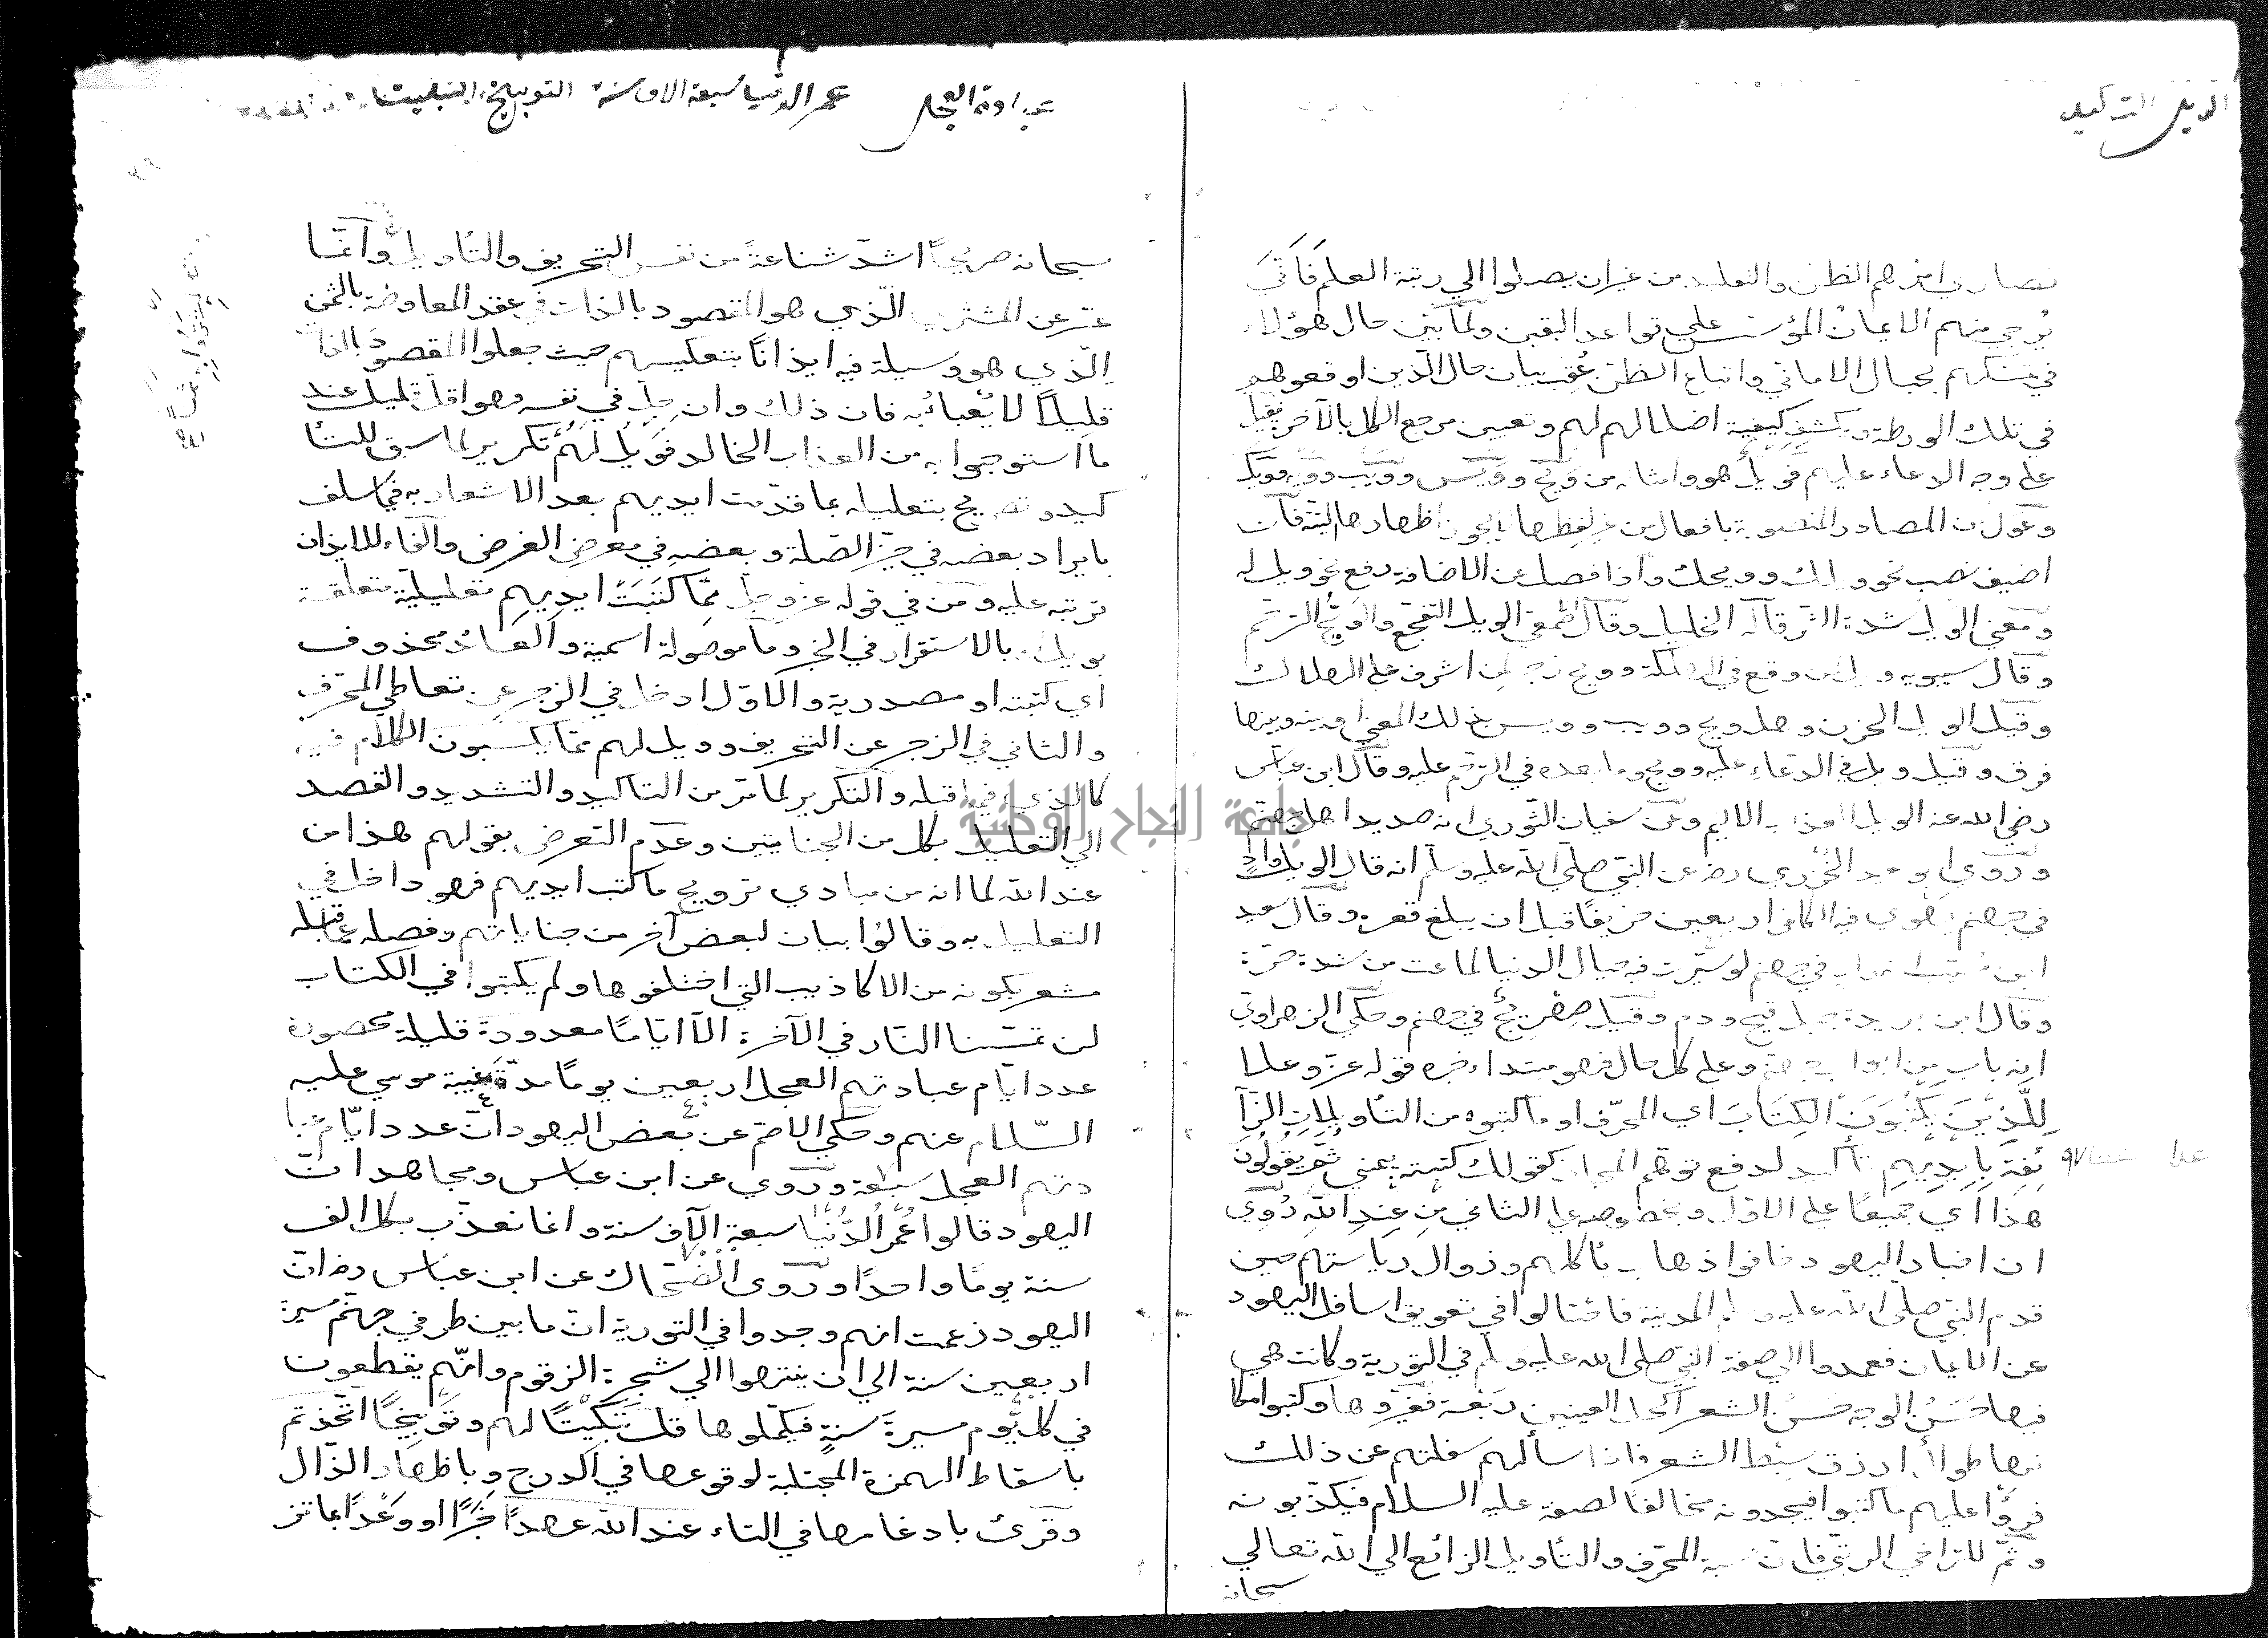 الويل التركيد
قصارى امرهم الظن والتقليد من غيران يصلوا الي رتبة العلم فانّي
يُرجي منهم الايمانُ المؤسس علي قواعد اليقين ولمّا بيّن حال هؤلاء
في تمسّكهم بحبال الاماني واتباع الظنّ عُقب ببيان حال الّذين اوقعوهم
في تلك الورطة وبكشف كيفية اضلالهم لهم وتعيين مرجع الكل بالآخرة فقيل
علي وجه الدعاء عليهم فويل هو وامثاله من ويح وويس وويب وويه وويك
وعول من المصادر المنصوبة بافعال من غير لفظها لايجوز اظهارها البتّة فان
اضيف نصب نحو ويلك وويحك واذا فصل عن الاضافة رفع نحو ويل له
ومعني الويل شدة الشر قاله الخليل وقال الاصمعي الويل التفجّع والويح الترحّم
وقال سيبويه ويل لمن وقع في الهلكة وويح زجر لمن اشرف علي الهلاك
وقيل الويل الحزن وهل ويح وويب وويس بذلك المعني او بينه وبينها
فرق وقيل ويل في الدّعاءِ عليه وويح وما بعده في الترحّم عليه وقال ابن عبّاس
رضي الله عنه الويل العذاب الاليم وعن سفيان الثّوري انه صديد اهل جهنّم
وروي ابو سعيد الخُدري رضه عن النبيّ صلّي الله عليه وسلّم انه قال الويل وادٍ
في جهنم يهوي فيه الكافر اربعين خريفًا قبل ان يبلغ قعره وقال سعيد
ابن المسيّب انه واد في جهنم لو سُيّرت فيه جبال الدنيا لماعت من شدة حرّه
وقال ابن بريدة جبل قيح ودم وقيل صهريجٌ في جهنم وحكي الزهراوي
انّه باب من ابواب جهنم وعلي كل حال فهو مبتداء خبره قوله عزّ وعلا
لِلَّذِينَ يَكْتُبُونَ الكِتَابَ اي المحرّف او ما كتبوه من التأويلات الزا
ئغة بِايدِيهِم تأكيد لدفع توهّم المجاز كقولك كتبته بيميني ثُمّ يَقُولُونَ
هذَا اي جميعًا علي الاوّل وبخصوصه علي الثاني مِن عِندِ اللهِ رُوِي
ان احبار اليهود خافوا ذهاب مأكلهم وزوال رياستهم حين
قدم النبيّ صلّي الله عليه وسلم المدينة فاحتالوا في تعويق اسافل اليهود
عن الايمان فعمدوا الي صفة النبيّ صلي الله عليه وسلّم في التورية وكانت هي
فيها حَسَنُ الوجه حَسَنُ الشعر اكحل العينين رَبْعة فغيّروها وكتبوا مكا
نها طوالٌ ازرق سَبِط الشعر فاذا سألهم سفلتهم عن ذلك
قرؤا عليهم ما كتبوا فيجدونه مخالفا لصفته عليه السلام فيكذّبونه
وثمّ للتراخي الرتبي فان نسبة المحرّف والتأويل الزائع الي الله تعالي
سبحانه
عبادة العجل عمر الدنيا سبعة الاف سنة التوبيخ التبكيت
٣٦
سبحانه صريحًا اشدّ شناعةً من نفس التحريف والتأويل وانّما
عبّر عن المشتري الّذي هو المقصود بالذات في عقد المعاوضة بالثمن
الّذي هو وسيلة فيه ايذانًا بتعكيسهم حيث جعلوا المقصود بالذات
قليلًا لا يُعبأُ به فان ذلك وان جلّ في نفسه فهو اقل قليل عند
ما استوجبوا به من العذاب الخالد فَوَيْلٌ لَهُمْ تكرير لما سبق للتا
كيد وتصريح بتعليله بما قدّمت ايديهم بعد الاشعار به فيما سلف
بايراد بعضه في حيّز الصّلة وبعضه في معرض الغرض والفاء للايذان
بترتّبه عليه ومن في قوله عز وجل مِّمَّا كَتَبَتْ ايدِيهِم تعليلية متعلقة
بويل او بالاستقرار في الخبر وما موصولة اسمية والعائد محذوف
اي كتبته او مصدرية والاوّل ادخل في الزجر عن تعاطي المحرّف
والثاني في الزجر عن التحريف وويل لهم ممّا يكسبون الكلام فيه
كالذي فيما قبله والتكرير لما مرّ من التاكيد والتشديد والقصد
الي التعليل بكل من الجنايتين وعدم التعرض بقولهم هذا من
عند الله لما انه من مبادي ترويج ما كتب ايديهم فهو داخل في
التعليل به وقالُوا بيان لبعض آخر من جناياتهم وفصله عمّا قبله
مشعر بكونه من الاكاذيب التي اختلقوها ولم يكتبوا في الكتاب
لن تمسّنا النّار في الآخرة الاّ ايّامًا معدودة قليلة محصورة
عدد ايّام عبادتهم العجل اربعين يومًا مدّة غيبة موسي عليه
السّلام عنهم وحكي الاصمّ عن بعض اليهود انّ عدد ايّام عبا
دتهم العجل سبعة ورُوي عن ابن عباس ومجاهد انّ
اليهود قالوا عُمْرُ الدُّنْيَا سبعة الآف سنة وانما نعذّب بكل الف
سنة يومًا واحدًا وروي الضّحّاك عن ابن عبّاس رضه انّ
اليهود زعمت انهم وجدوا في التورية انّ ما بين طرفي جهنّم مسيرة
اربعين سنة الي ان ينتهوا الي شجرة الزقوم وانّهم يقطعون
في كل يَوم مسيرة سنةٍ فيكمّلوها قل تبكيْتًا لهم وتَوبيخًا اتّخذتم
باسقاط الهمزة المجتلبة لوقوعها في الدرج وباظهار الذّال
وقرئ بادغامها في التاء عند الله عهدًا خبرًا او وَعْدًا بما تز
جامعة النجاح الوطنية